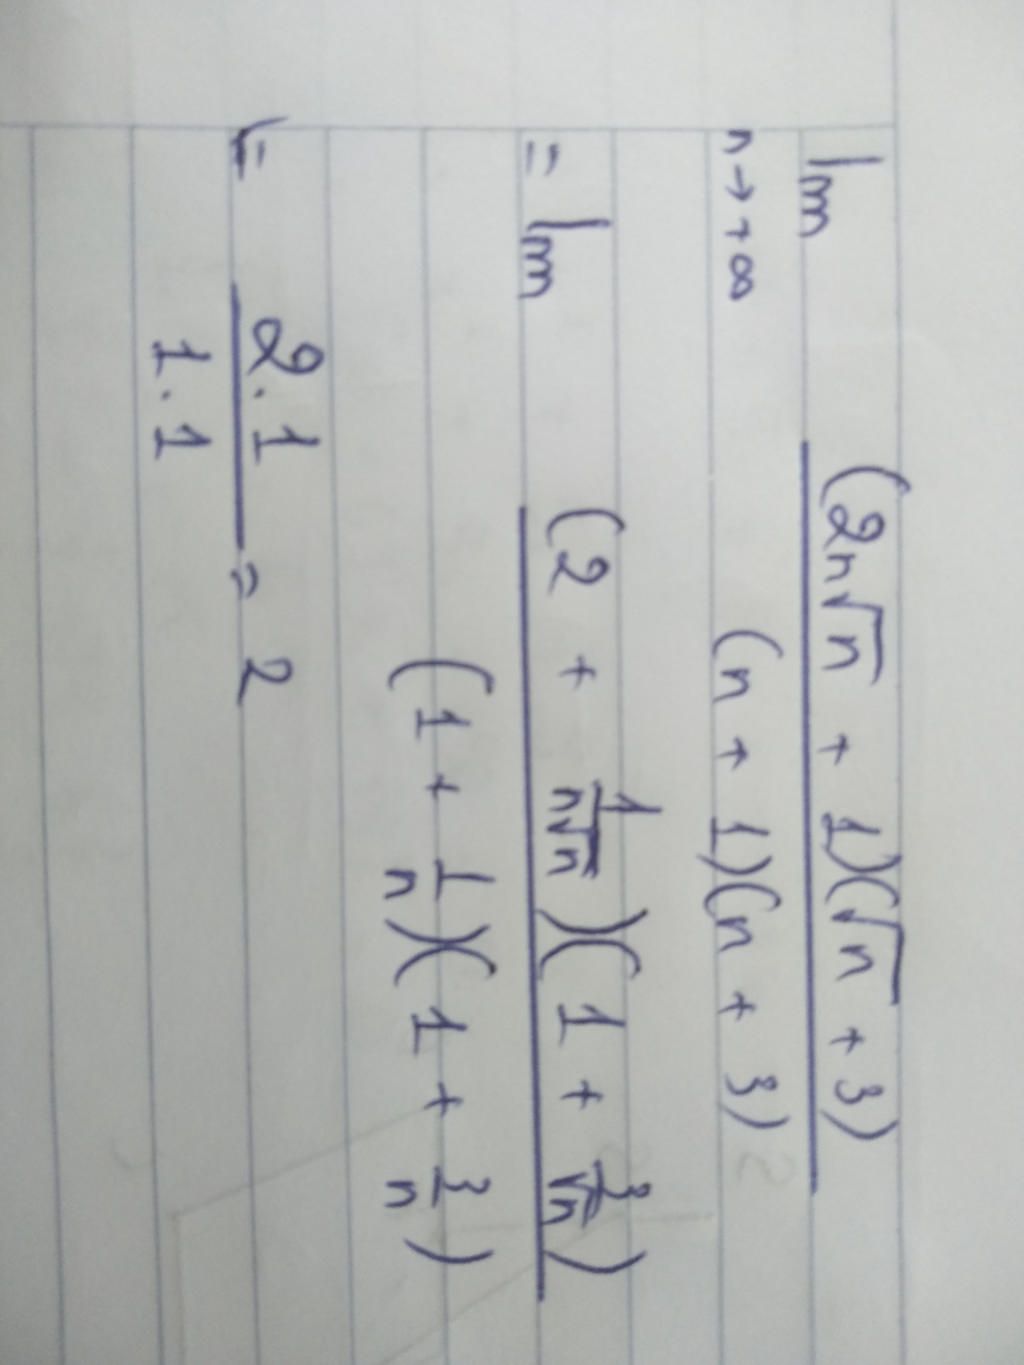 lim (2n√n + 1)(√n + 3)
n→+∞ (n + 1)(n + 3)
= lim (2 + 1/n√n)(1 + 3/√n)
(1 + 1/n)(1 + 3/n)
= 2.1/1.1 = 2